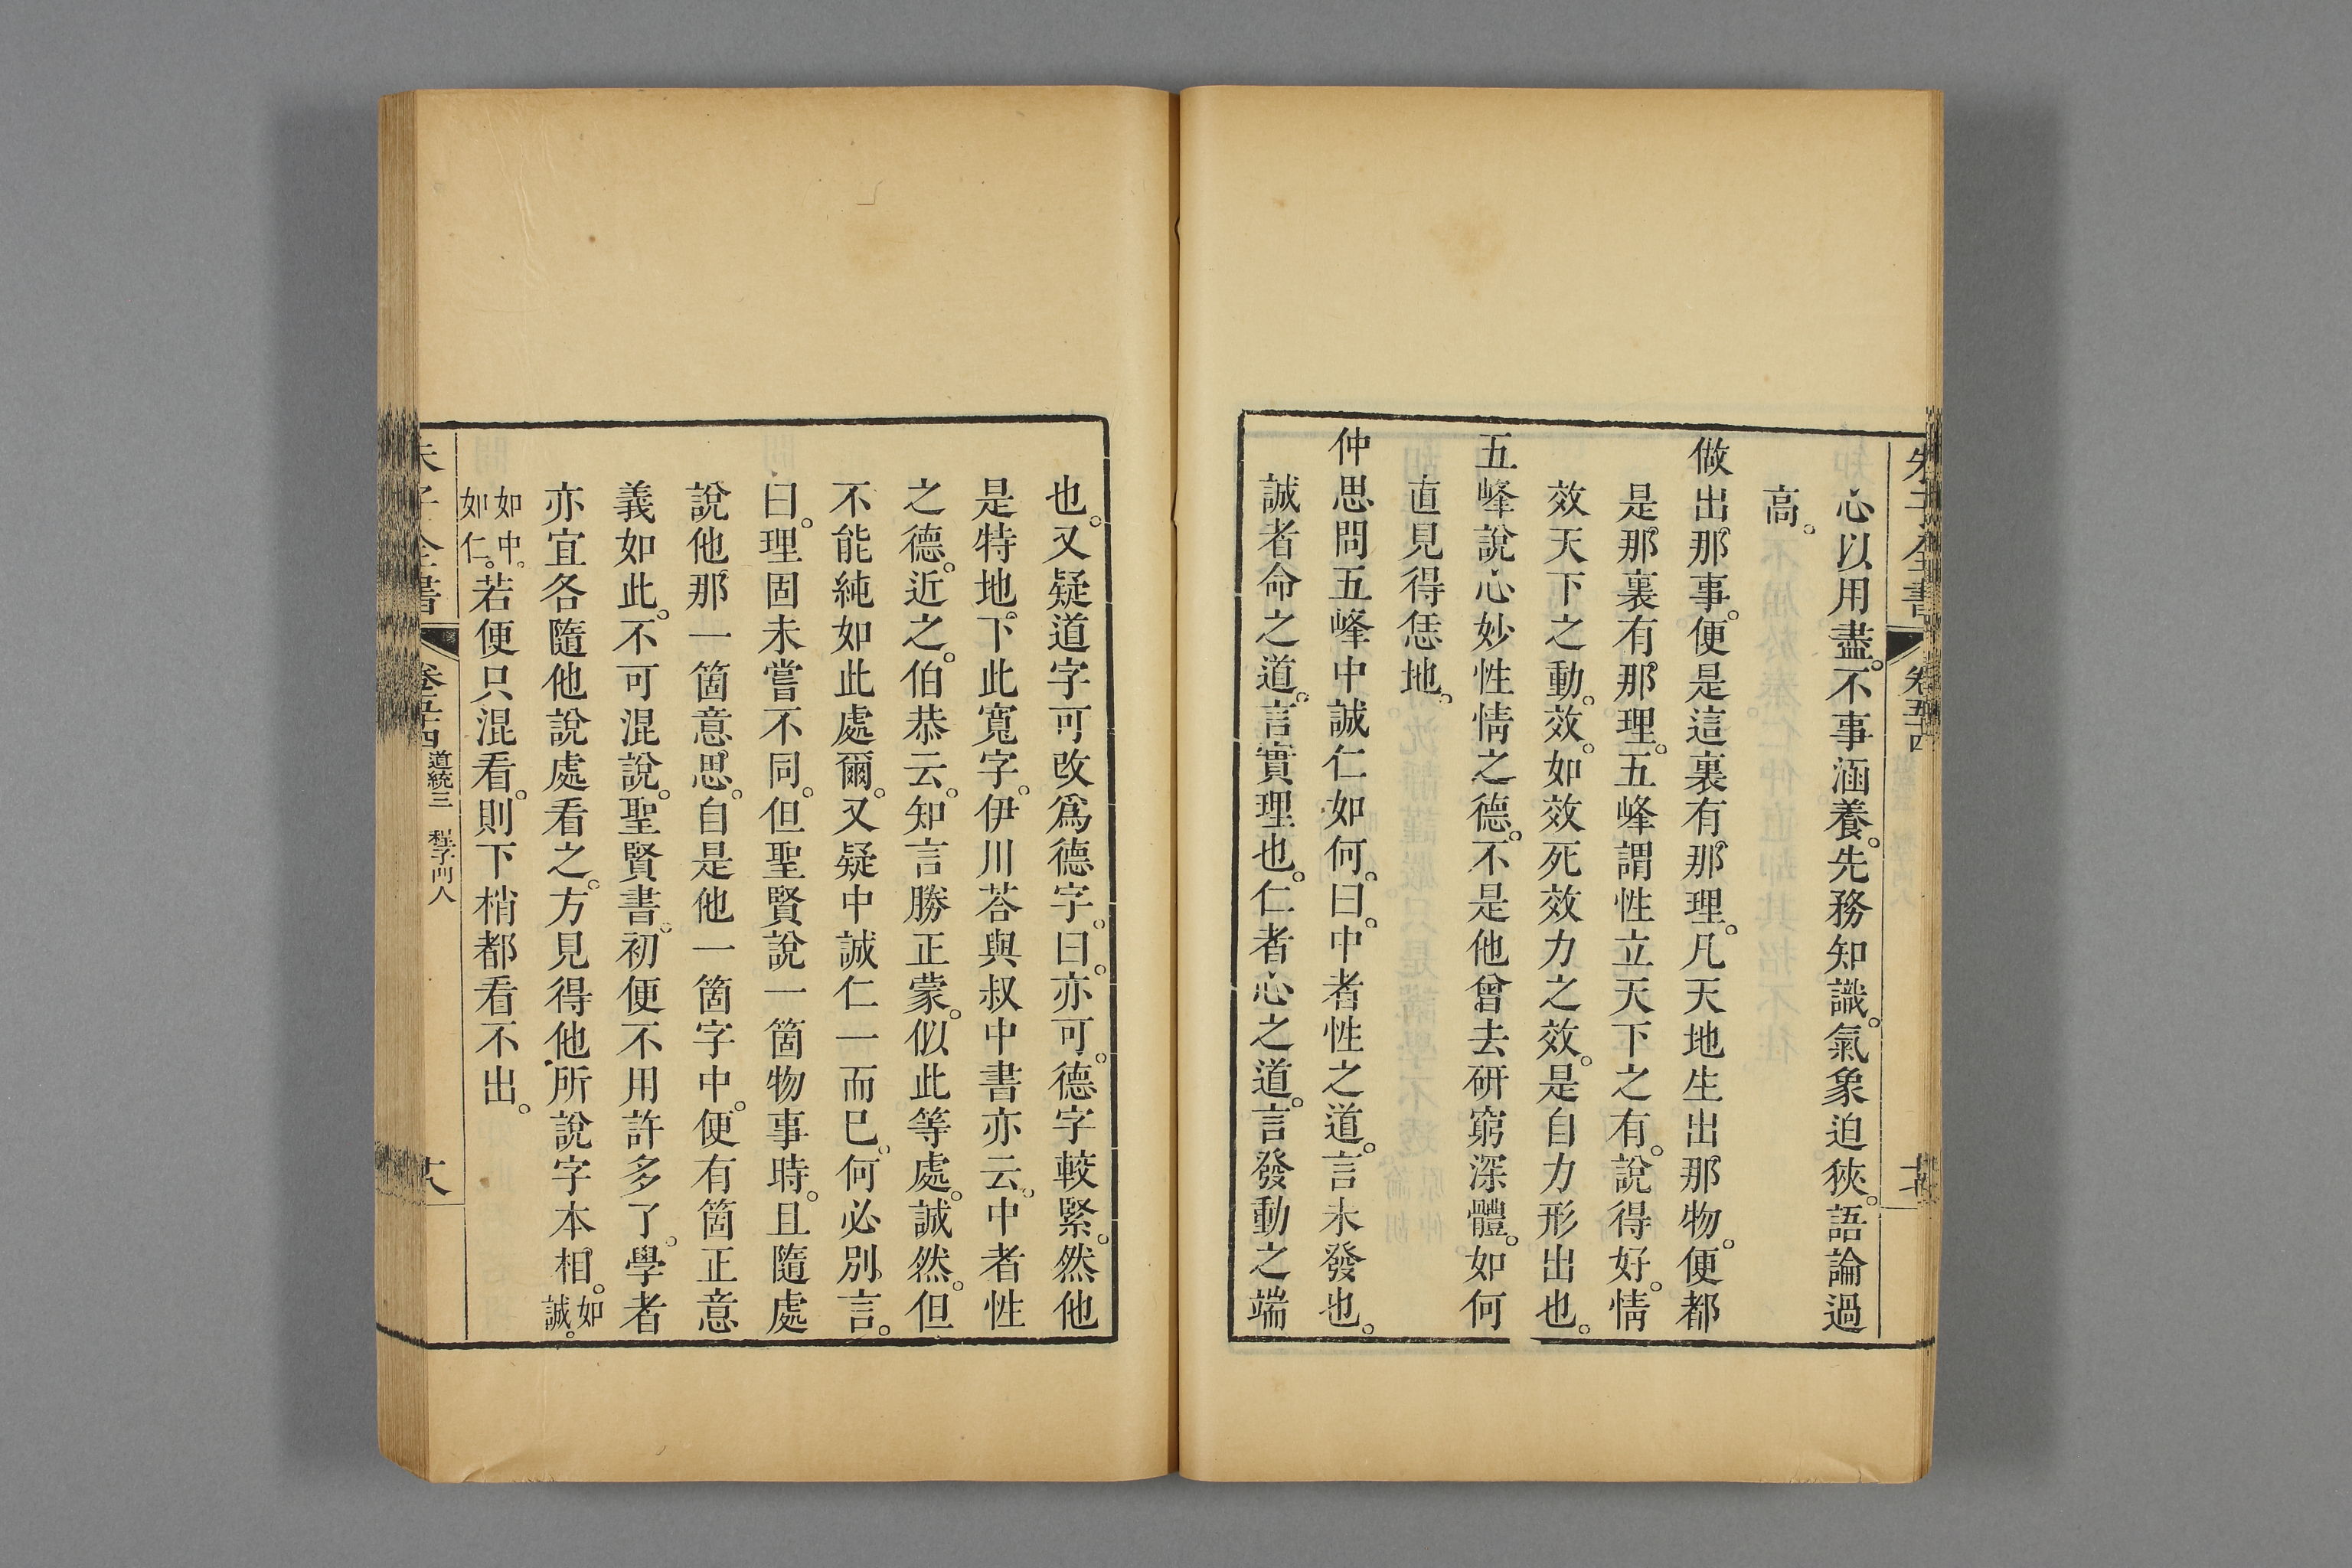 朱子全書 卷五十四
心以用盡。不事涵養。先務知識。氣象迫狹。語論過
高。
做出那事。便是這裏有那理。凡天地生出那物。便都
是那裏有那理。五峰謂性立天下之有。說得好。情
效天下之動。效。如效死效力之效。是自力形出也。
五峰說心妙性情之德。不是他曾去研窮深體。如何
直見得恁地。
仲思問五峰中誠仁如何。曰。中者性之道。言未發也。
誠者命之道。言實理也。仁者心之道。言發動之端
也。又疑道字可改爲德字。曰。亦可。德字較緊。然他
是特地。下此寬字。伊川荅與叔中書亦云。中者性
之德。近之。伯恭云。知言勝正蒙。似此等處。誠然。但
不能純如此處爾。又疑中誠仁一而巳。何必別言。
曰。理固未嘗不同。但聖賢說一箇物事時。且隨處
說他那一箇意思。自是他一箇字中。便有箇正意
義如此。不可混說。聖賢書。初便不用許多了。學者
亦宜各隨他說處看之。方見得他所說字本相。如誠。
如中。如仁。若便只混看。則下梢都看不出。
朱子全書 卷五十四 道統三 程子門人 十八